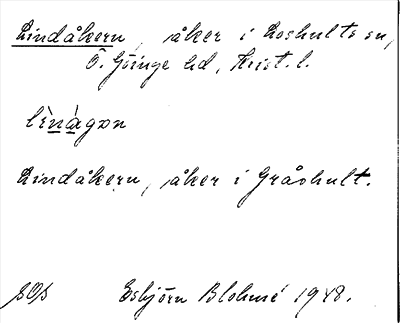 Lindåkern, åker i Loshults sn,
Ö. Göinge hd, Krist. l.
lìnàgən
Lindåkern, åker i Gråshult.
SOs Esbjörn Blohmé 1948.